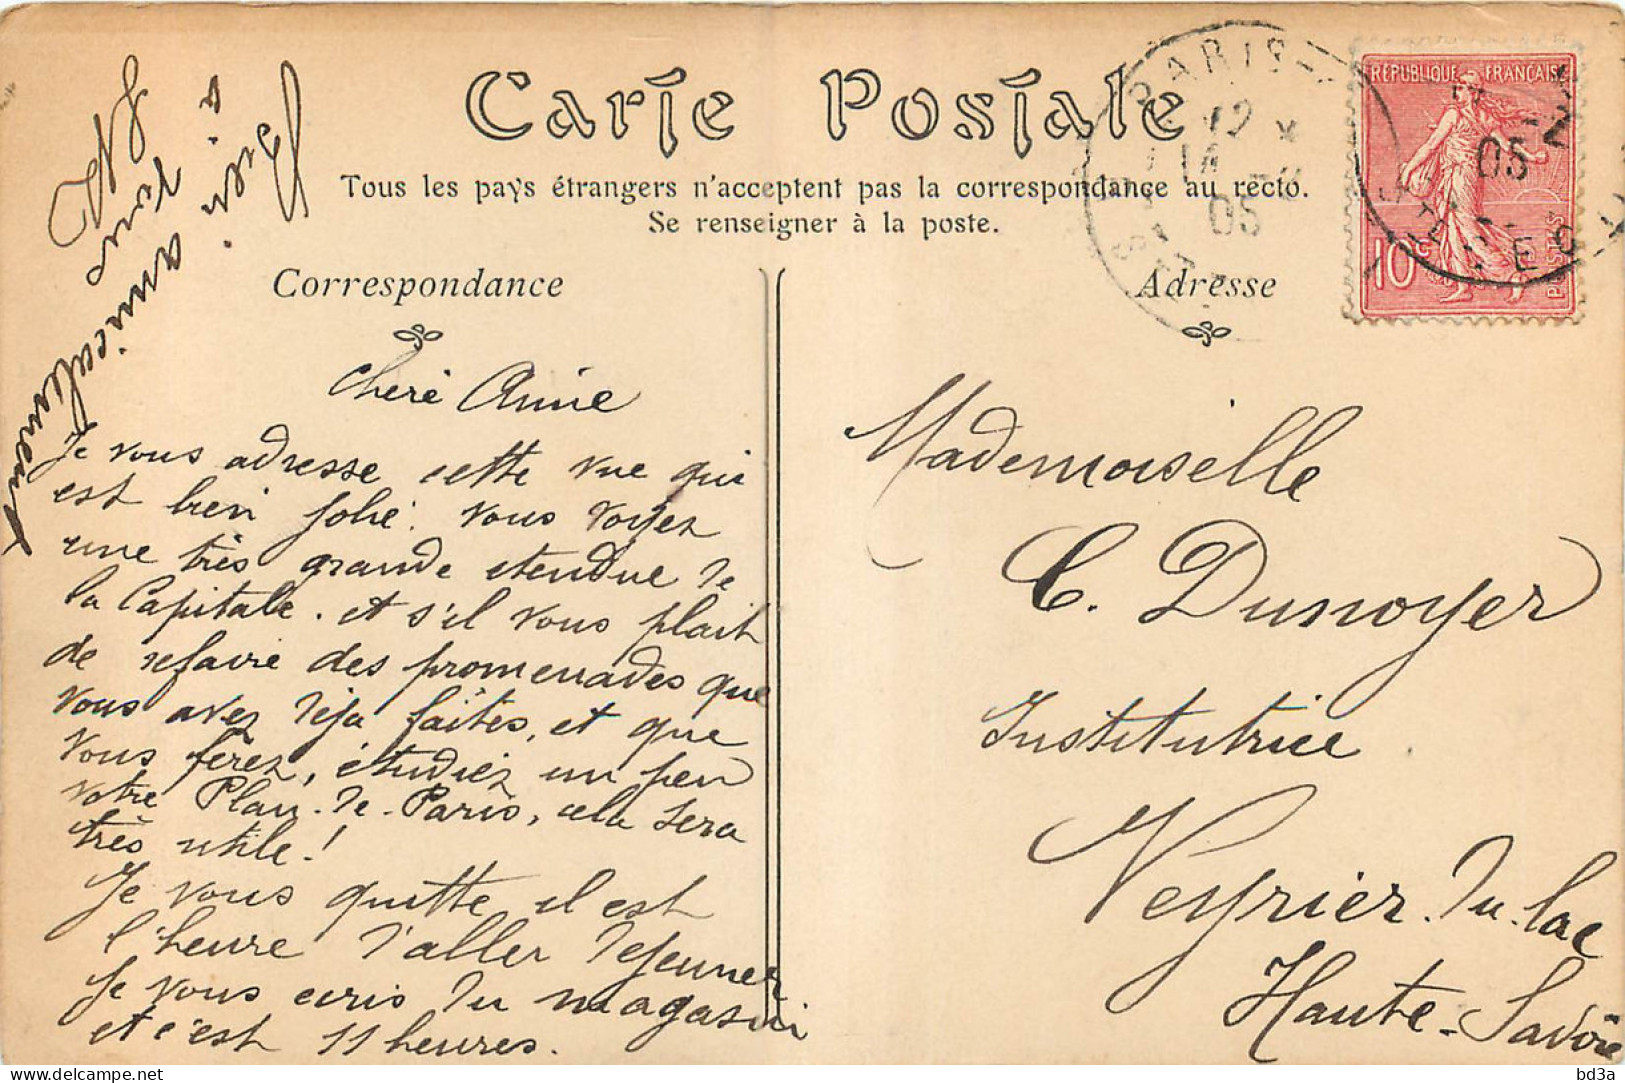 Carte Postale
Tous les pays étrangers n'acceptent pas la correspondance au recto.
Se renseigner à la poste.
Correspondance
Adresse
RÉPUBLIQUE FRANÇAISE
10c
POSTES
PARIS
12
05
05
Chère Amie
Je vous adresse cette vue qui
est bien jolie. Vous voyez
une très grande étendue de
la Capitale. et s'il vous plait
de refaire des promenades que
vous avez déja faites, et que
vous ferez, étudiez un peu
votre Plan-de-Paris, cela sera
très utile!
Je vous quitte il est
l'heure d'aller déjeuner
Je vous ecris du magasin
et c'est 11 heures.
Bien amicalement
à vous
Mademoiselle
C. Dunoyer
Institutrice
Veyrier-du-lac
Haute-Savoie
delcampe.net
bd3a